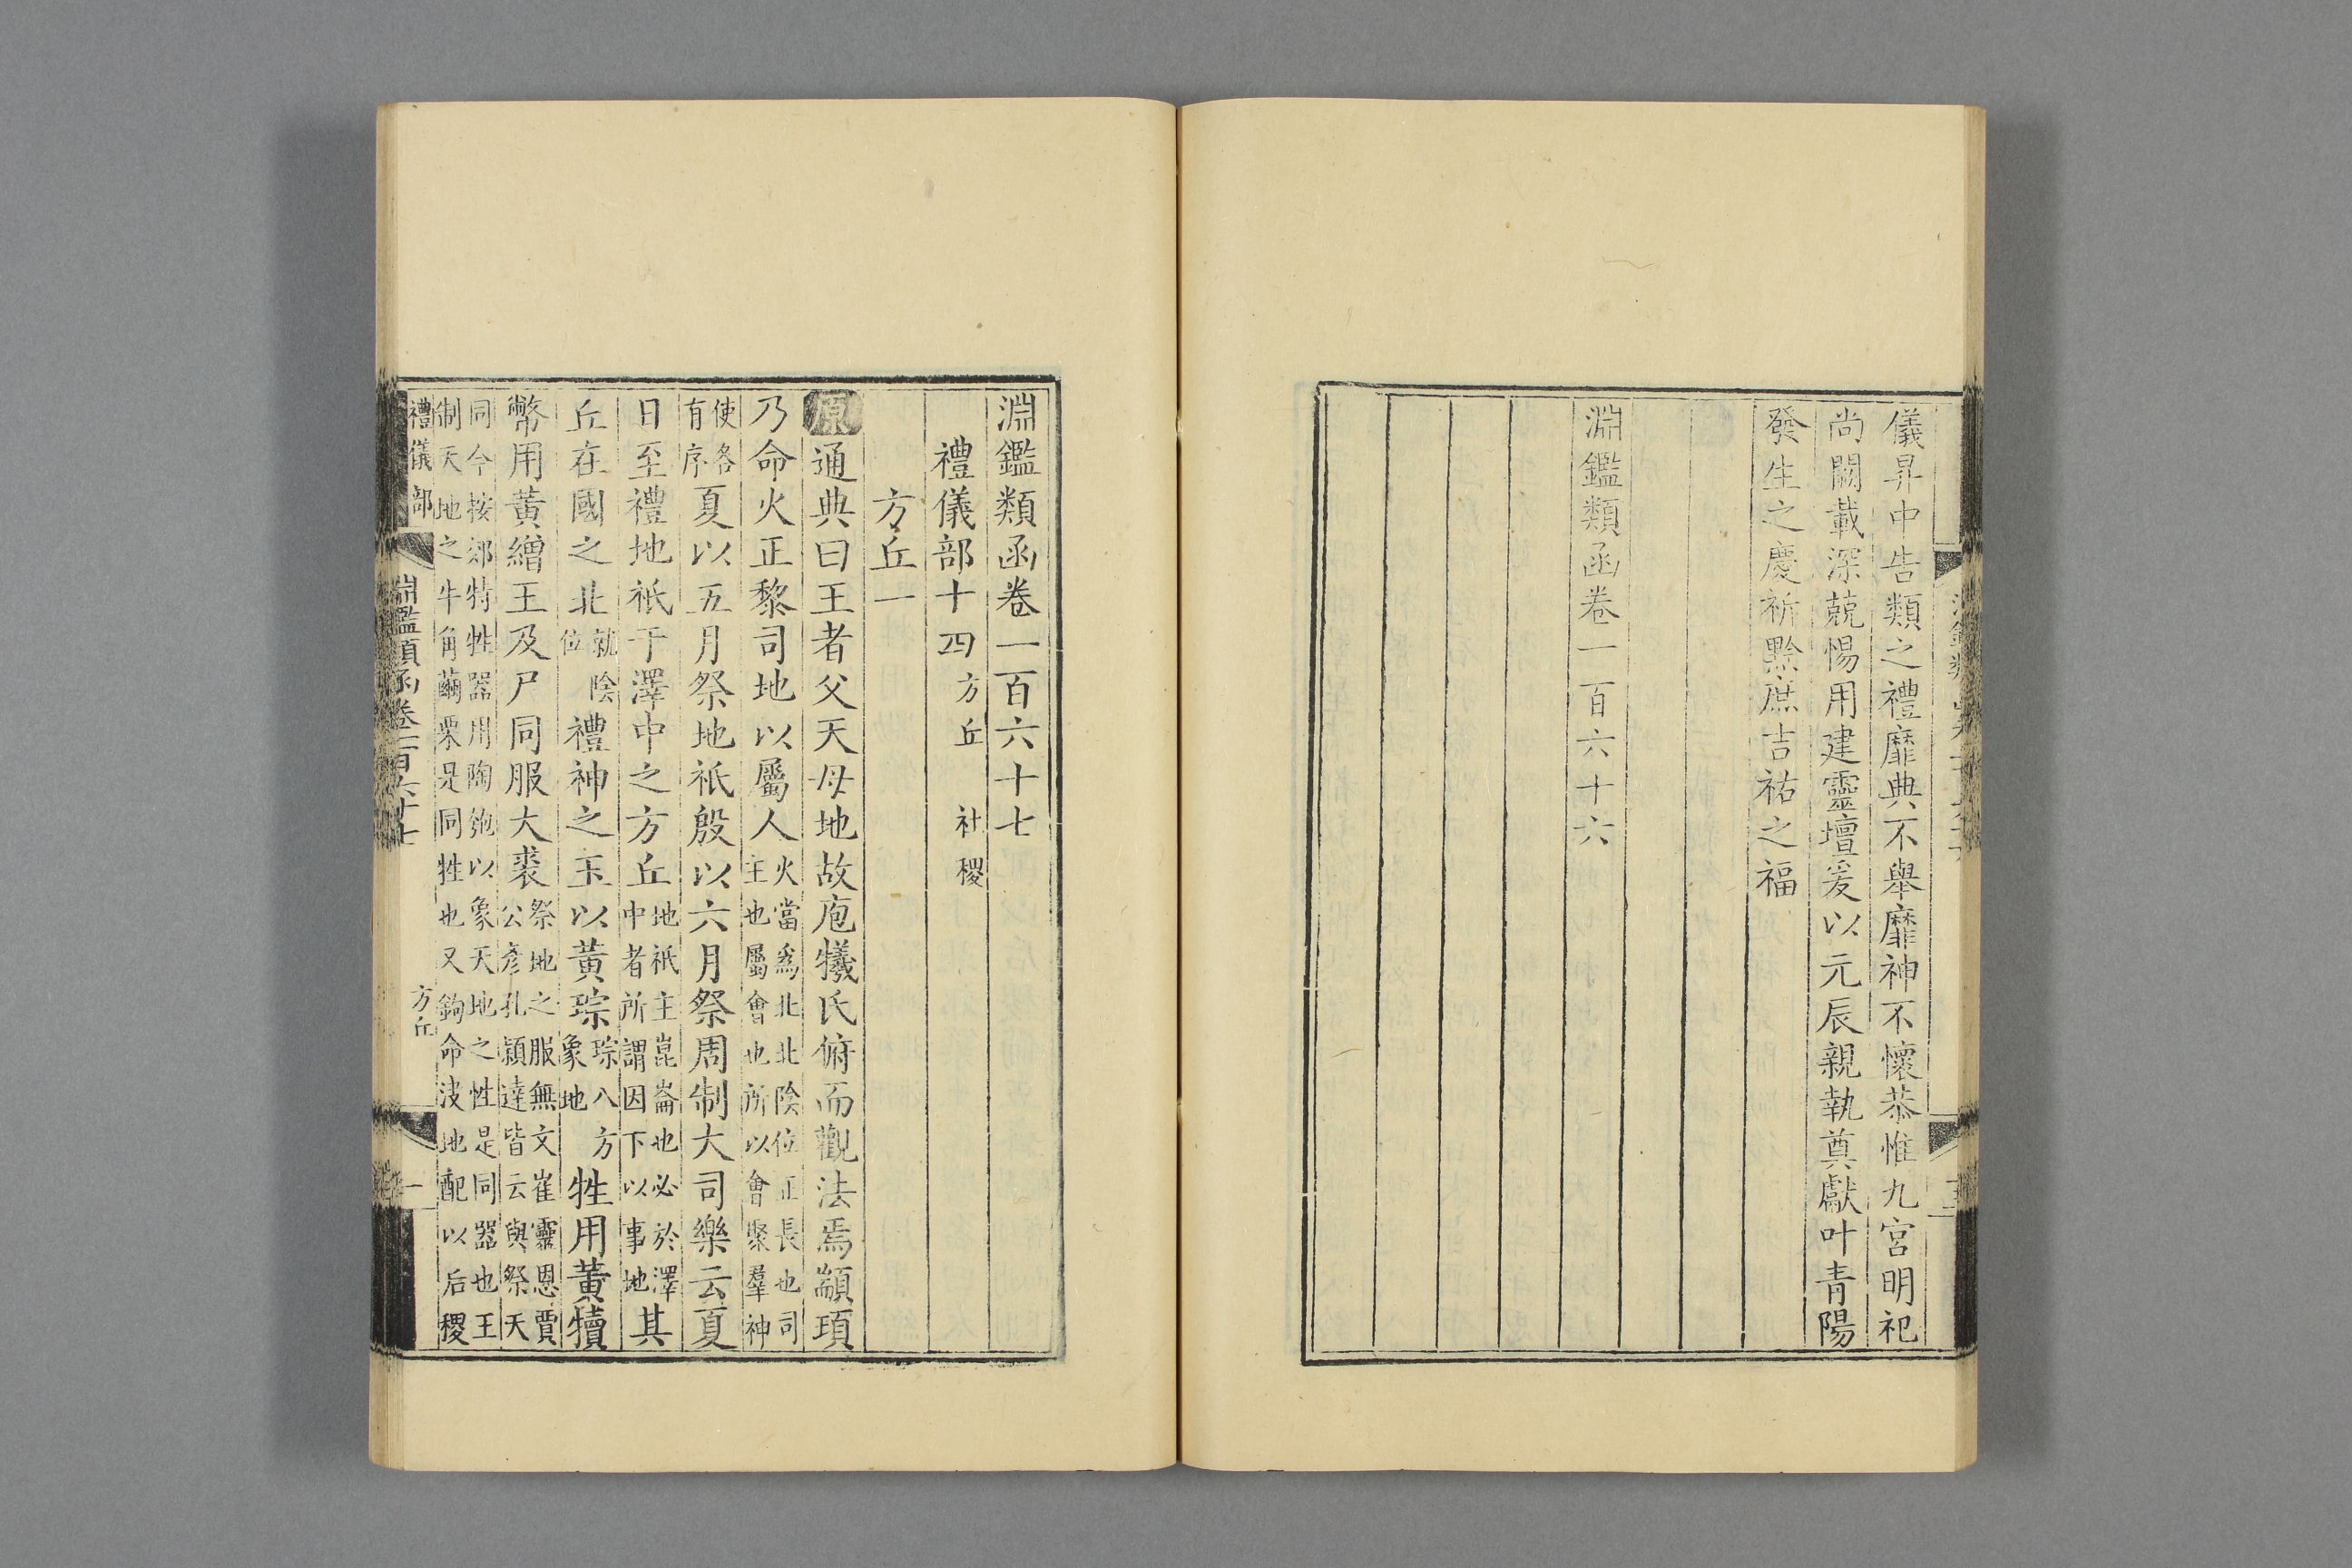 儀昇中告類之禮靡典不舉靡神不懷恭惟九宮明祀
尚闕載深兢惕用建靈壇爰以元辰親執奠獻叶青陽
發生之慶祈黔庶吉祐之福
淵鑑類函卷一百六十六
淵鑑類函卷一百六十七
禮儀部十四 方丘 社稷
方丘一
原 通典曰王者父天母地故庖犧氏俯而觀法焉顓頊
乃命火正黎司地以屬人火當爲北北陰位正長也司
主也屬會也所以會聚羣神
使各
有序夏以五月祭地祇殷以六月祭周制大司樂云夏
日至禮地祇于澤中之方丘地祇主崑崙也必於澤
中者所謂因下以事地其
丘在國之北就陰
位禮神之玉以黃琮琮八方
象地牲用黃犢
幣用黃繒王及尸同服大裘祭地之服無文崔靈恩賈
公彥孔穎達皆云與祭天
同今按郊特牲器用陶匏以象天地之性是同器也王
制天地之牛角繭栗是同牲也又鉤命決地配以后稷
禮儀部 淵鑑類函卷一百六十七 方丘 一